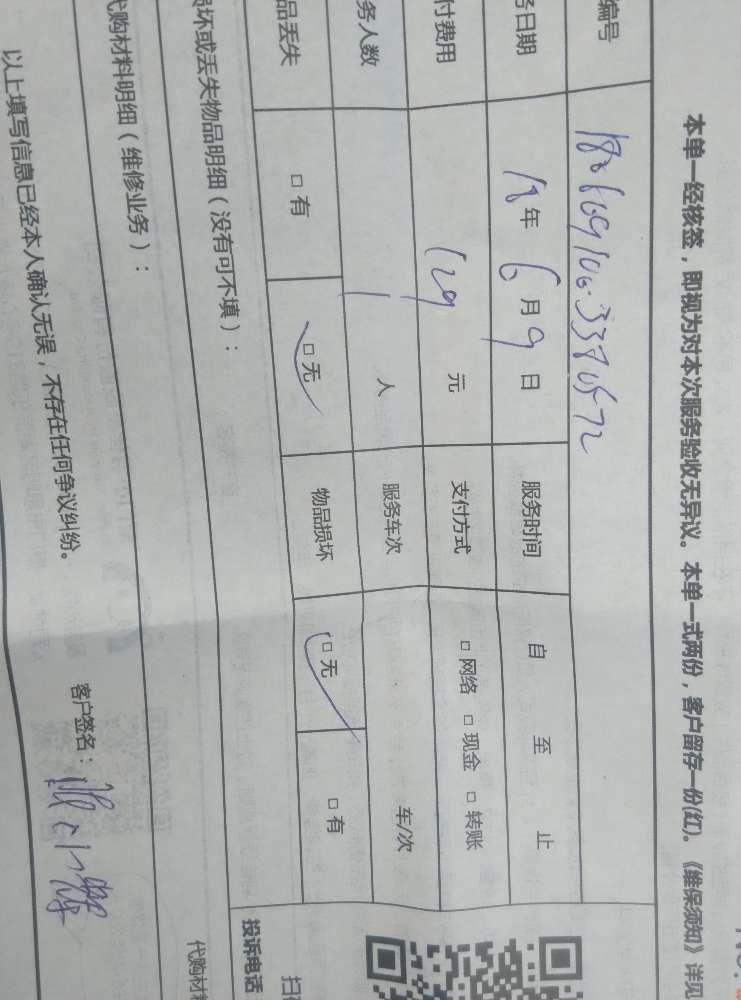 本单一经核签，即视为对本次服务验收无异议。本单一式两份，客户留存一份(红)。《维保须知》详见
编号
务日期 18年6月9日 服务时间 自 至 止
付费用 129元 支付方式 □网络 □现金 □转账
务人数 1人 服务车次 车/次
品丢失 □有 □无 物品损坏 □无 □有
损坏或丢失物品明细（没有可不填）：
代购材料明细（维修业务）：
以上填写信息已经本人确认无误，不存在任何争议纠纷。
客户签名：
投诉电话
代购材料